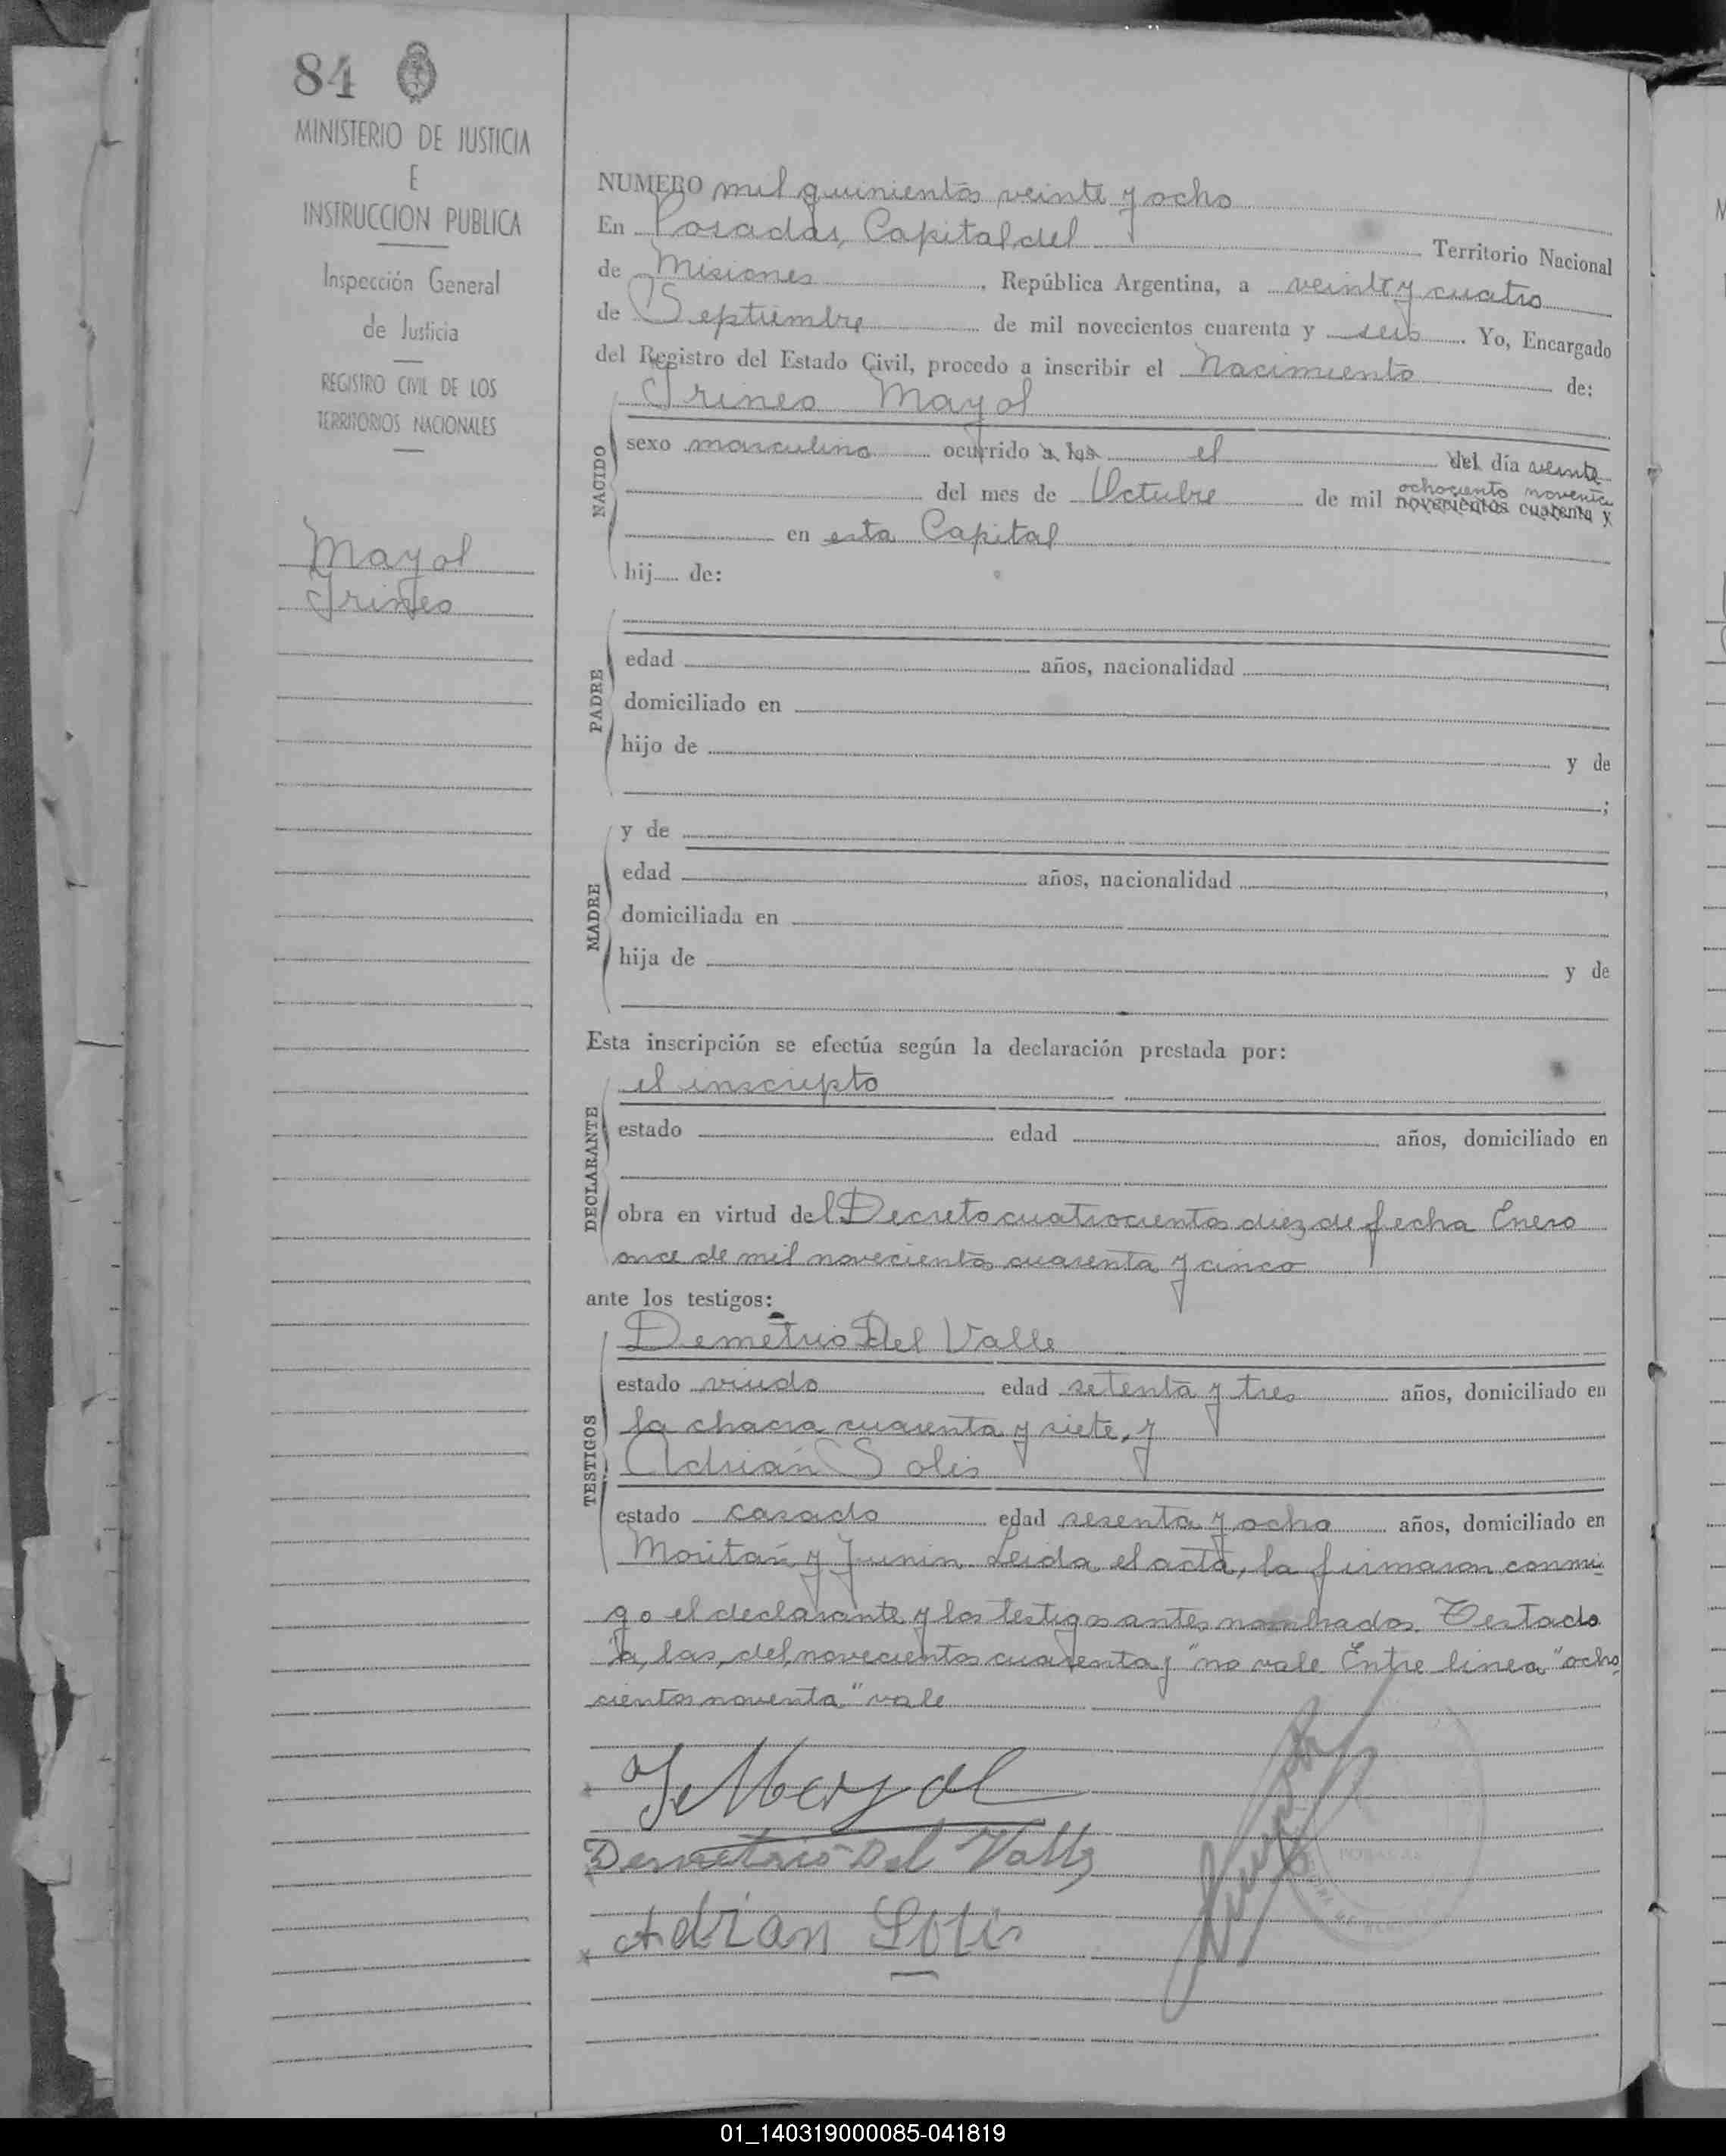 84
MINISTERIO DE JUSTICIA
E
INSTRUCCION PUBLICA
Inspección General
de Justicia
REGISTRO CIVIL DE LOS
TERRITORIOS NACIONALES
Mayol
Irineo
NUMERO mil quinientos veinte y ocho
En Posadas, Capital del Territorio Nacional
de Misiones, República Argentina, a veinte y cuatro
de Septiembre de mil novecientos cuarenta y seis. Yo, Encargado
del Registro del Estado Civil, procedo a inscribir el Nacimiento de:
Irineo Mayol
NACIDO
sexo masculino ocurrido a las el del día veinte
ochociento noventa
del mes de Octubre de mil novecientos cuarenta y
en esta Capital
hij de:
PADRE
edad años, nacionalidad ,
domiciliado en
hijo de y de
;
MADRE
y de
edad años, nacionalidad ,
domiciliada en
hija de y de
Esta inscripción se efectúa según la declaración prestada por:
DECLARANTE
el inscripto
estado edad años, domiciliado en
obra en virtud del Decreto cuatrocientos diez de fecha Enero
once de mil novecientos cuarenta y cinco
ante los testigos:
TESTIGOS
Demetrio Del Valle
estado viudo edad setenta y tres años, domiciliado en
la chacra cuarenta y siete, y
Adrián Solis
estado casado edad sesenta y ocho años, domiciliado en
y Junin. Leida el acta, la firmaron conmi
go el declarante y los testigos antes nombrados. Testado
"a, las, del, novecientos cuarenta y" no vale. Entre linea "ocho
cientos noventa" vale
Mayol
Demetrio Del Valle
Adrian Solis
POSADAS
01_140319000085-041819